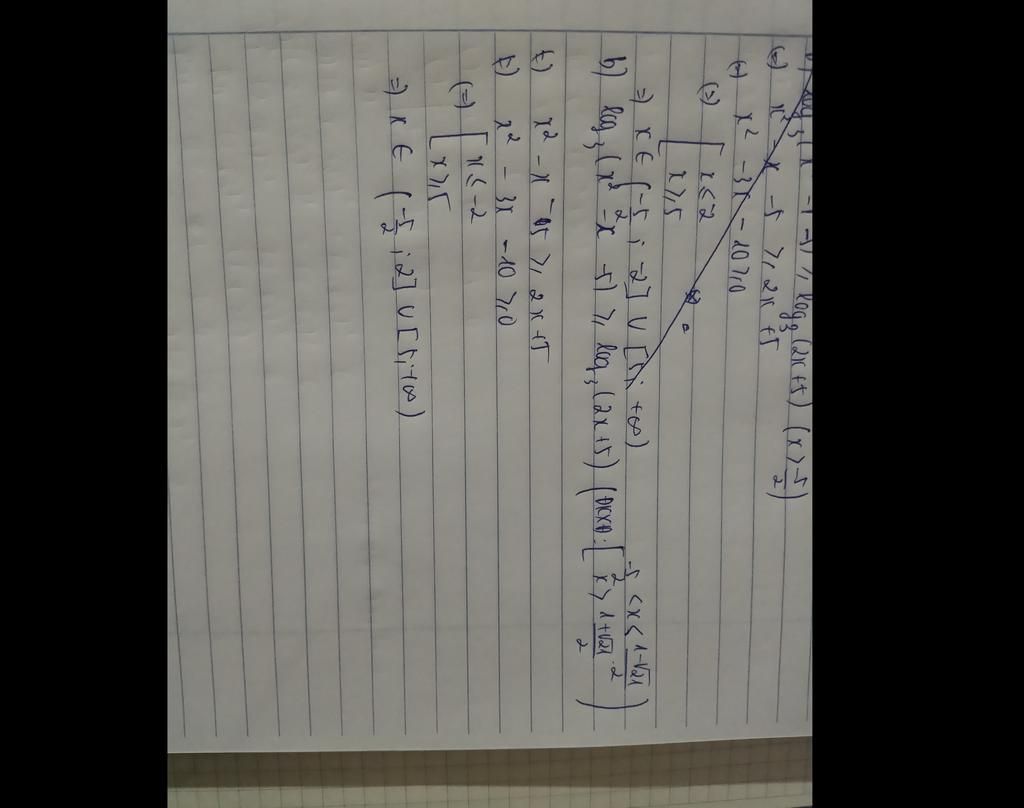 log₃(x² - x - 5) ≥ log₃(2x+5) (x > -5/2)
(=) x² - x - 5 ≥ 2x + 5
(=) x² - 3x - 10 ≥ 0
(=) [ x ≤ -2
x ≥ 5
=) x ∈ (-5/2 ; -2] ∪ [5; +∞)
b) log₃(x² - x - 5) ≥ log₃(2x+5) (ĐKXĐ: [ -5/2 < x < (1-√21)/2
x > (1+√21)/2 )
(=) x² - x - 5 ≥ 2x + 5
(=) x² - 3x - 10 ≥ 0
(=) [ x ≤ -2
x ≥ 5
=) x ∈ (-5/2 ; -2] ∪ [5; +∞)